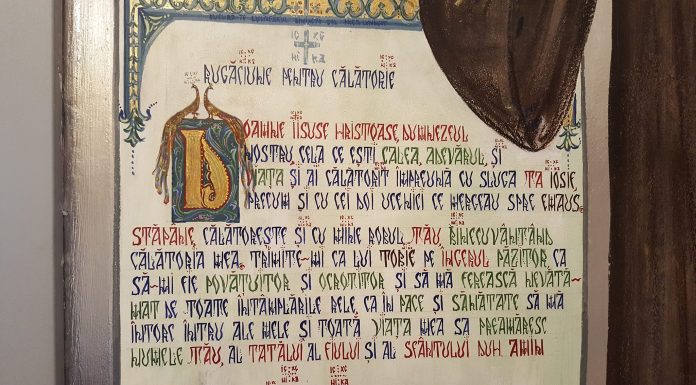 IC XC
NI KA
RUGĂCIUNE PENTRU CĂLĂTORIE
DOAMNE IISUSE HRISTOASE, DUMNEZEUL
NOSTRU, CELA CE EȘTI CALEA, ADEVĂRUL, ȘI
VIAȚA ȘI AI CĂLĂTORIT ÎMPREUNĂ CU SLUGA TA IOSIF,
PRECUM ȘI CU CEI DOI UCENICI CE MERGEAU SPRE EMAUS.
STĂPÂNE, CĂLĂTOREȘTE ȘI CU MINE ROBUL TĂU, BINECUVÂNTÂND
CĂLĂTORIA MEA. TRIMITE-MI CA LUI TOBIE PE ÎNGERUL PĂZITOR, CA
SĂ-MI FIE POVĂȚUITOR ȘI OCROTITOR ȘI SĂ MĂ FEREASCĂ NEVĂTĂ-
MAT DE TOATE ÎNTÂMPLĂRILE RELE, CA ÎN PACE ȘI SĂNĂTATE SĂ MĂ
ÎNTORC ÎNTRU ALE MELE ȘI TOATĂ VIAȚA MEA SĂ PREAMĂRESC
NUMELE TĂU, AL TATĂLUI AL FIULUI ȘI AL SFÂNTULUI DUH. AMIN
IC XC IC XC
NI KA